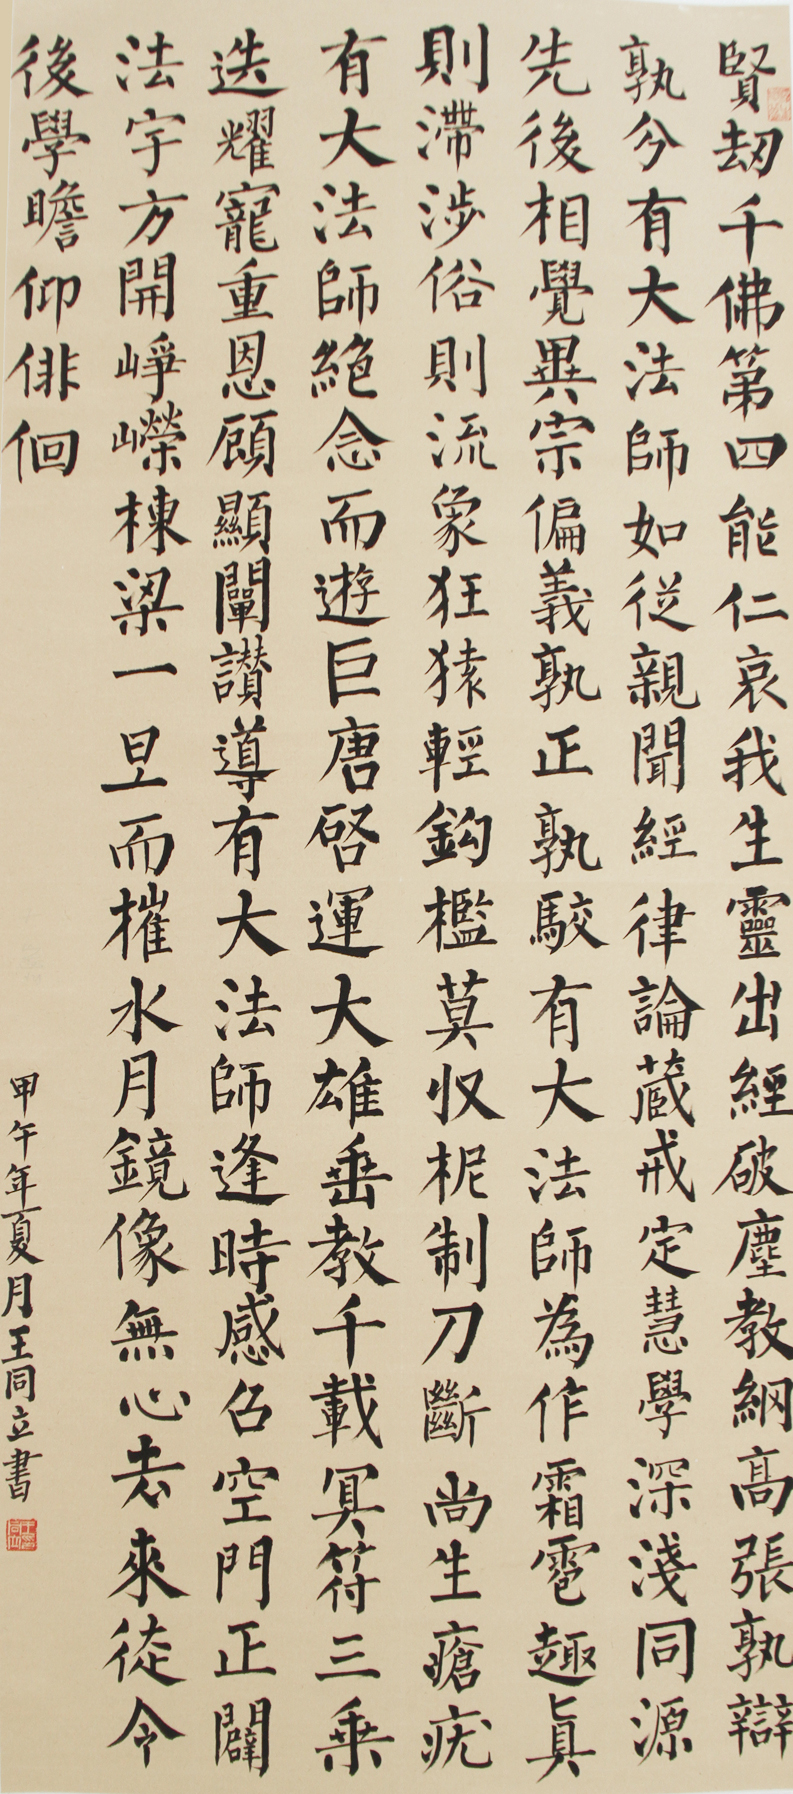 賢劫千佛第四能仁哀我生靈出經破塵教網高張孰辯
孰分有大法師如從親聞經律論藏戒定慧學深淺同源
先後相覺異宗偏義孰正孰駮有大法師為作霜雹趣真
則滯涉俗則流象狂猿輕鈎檻莫收柅制刀斷尚生瘡疣
有大法師絶念而遊巨唐啓運大雄垂教千載冥符三乘
迭耀寵重恩顧顯闡讃導有大法師逢時感召空門正闢
法宇方開崢嶸棟梁一旦而摧水月鏡像無心去來徒令
後學瞻仰俳佪
甲午年夏月王同立書